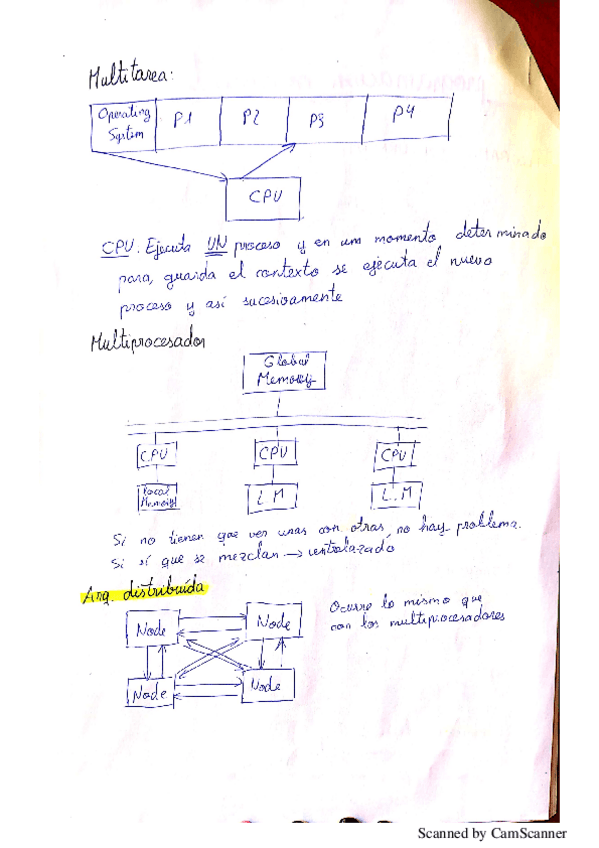 Multitarea:
Operating System P1 P2 P3 P4
CPU
CPU. Ejecuta UN proceso y en un momento determinado
para, guarda el contexto se ejecuta el nuevo
proceso y así sucesivamente
Multiprocesador
Global
Memory
CPU CPU CPU
Local Memory L.M L.M
Si no tienen que ver unas con otras, no hay problema.
Si sí que se mezclan → centralizado
Arq. distribuída
Ocurre lo mismo que
con los multiprocesadores
Node Node
Node Node
Scanned by CamScanner